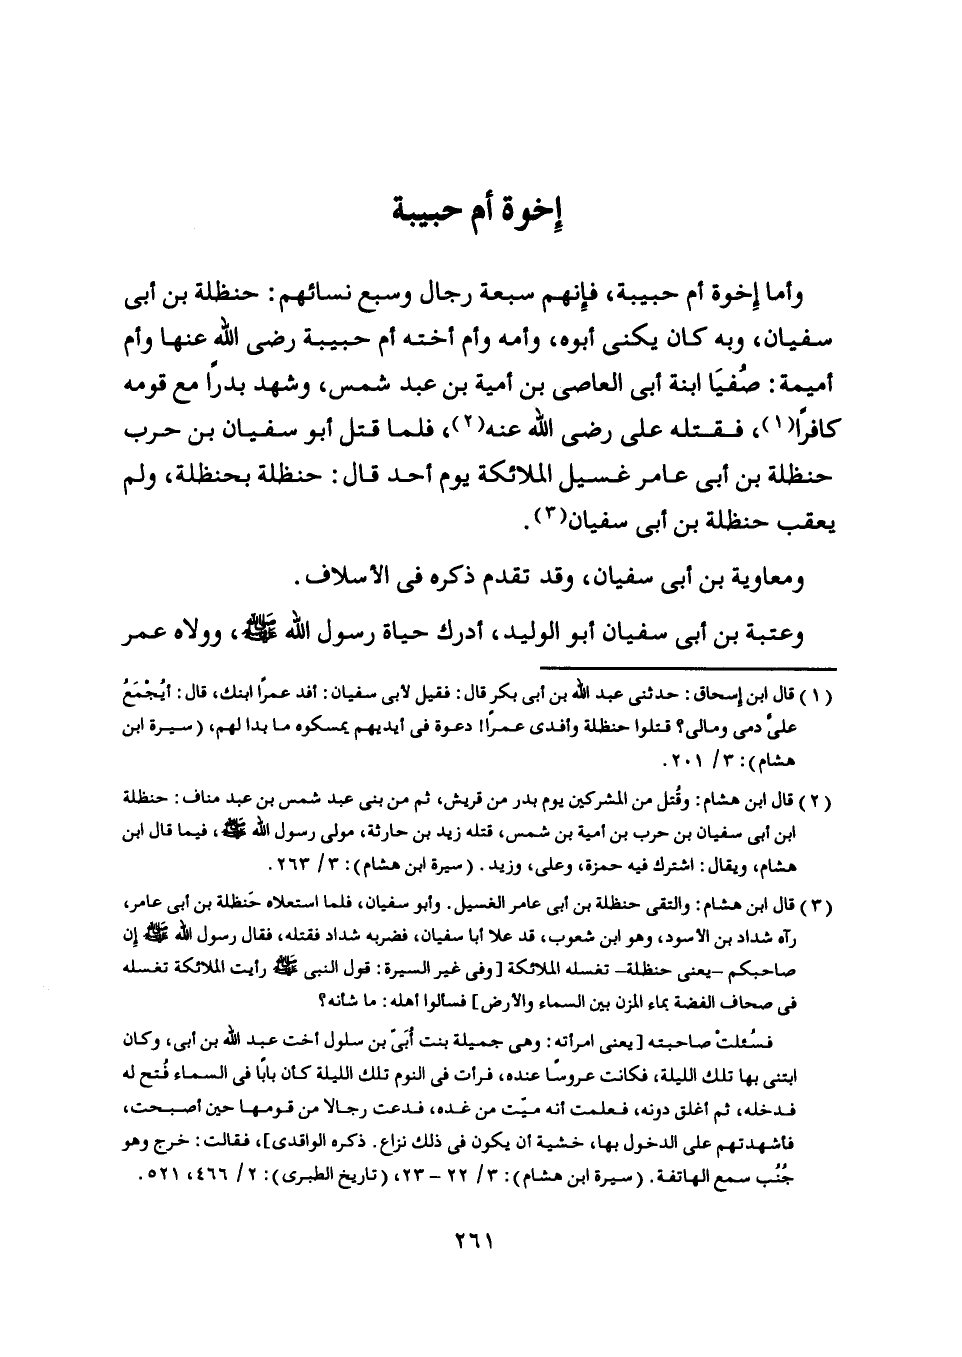 إخوة أم حبيبة
وأما إخوة أم حبيبة، فإنهم سبعة رجال وسبع نسائهم: حنظلة بن أبى
سفيان، وبه كان يكنى أبوه، وأمه وأم أخته أم حبيبة رضى الله عنها وأم
أميمة: صُفيَا ابنة أبى العاصى بن أمية بن عبد شمس، وشهد بدرًا مع قومه
كافرًا(١)، فقتله على رضى الله عنه(٢)، فلما قتل أبو سفيان بن حرب
حنظلة بن أبى عامر غسيل الملائكة يوم أحد قال: حنظلة بحنظلة، ولم
يعقب حنظلة بن أبى سفيان(٣).
ومعاوية بن أبى سفيان، وقد تقدم ذكره فى الأسلاف.
وعتبة بن أبى سفيان أبو الوليد، أدرك حياة رسول الله ﷺ، وولاه عمر
(١) قال ابن إسحاق: حدثنى عبد الله بن أبى بكر قال: فقيل لأبى سفيان: أفد عمرًا ابنك، قال: أيُجْمَعُ
علىَّ دمى ومالى؟ قتلوا حنظلة وأفدى عمرًا! دعوة فى أيديهم يمسكوه ما بدا لهم، (سيرة ابن
هشام): ٣/ ٢٠١.
(٢) قال ابن هشام: وقُتل من المشركين يوم بدر من قريش، ثم من بنى عبد شمس بن عبد مناف: حنظلة
ابن أبى سفيان بن حرب بن أمية بن شمس، قتله زيد بن حارثة، مولى رسول الله ﷺ، فيما قال ابن
هشام، ويقال: اشترك فيه حمزة، وعلى، وزيد. (سيرة ابن هشام): ٣/ ٢٦٣.
(٣) قال ابن هشام: والتقى حنظلة بن أبى عامر الغسيل. وأبو سفيان، فلما استعلاه حَنظلة بن أبى عامر،
رآه شداد بن الأسود، وهو ابن شعوب، قد علا أبا سفيان، فضربه شداد فقتله، فقال رسول الله ﷺ إن
صاحبكم -يعنى حنظلة- تغسله الملائكة [وفى غير السيرة: قول النبى ﷺ رأيت الملائكة تغسله
فى صحاف الفضة بماء المزن بين السماء والأرض] فسألوا أهله: ما شأنه؟
فسُئلتْ صاحبته [يعنى امرأته: وهى جميلة بنت أُبَىّ بن سلول أخت عبد الله بن أبى، وكان
ابتنى بها تلك الليلة، فكانت عروسًا عنده، فرأت فى النوم تلك الليلة كان بابًا فى السماء فُتح له
فدخله، ثم أغلق دونه، فعلمت أنه ميّت من غده، فدعت رجالا من قومها حين أصبحت،
فأشهدتهم على الدخول بها، خشية أن يكون فى ذلك نزاع. ذكره الواقدى]، فقالت: خرج وهو
جُنُب سمع الهاتفة. (سيرة ابن هشام): ٣/ ٢٢ - ٢٣، (تاريخ الطبرى): ٢/ ٤٦٦، ٥٢١.
٢٦١